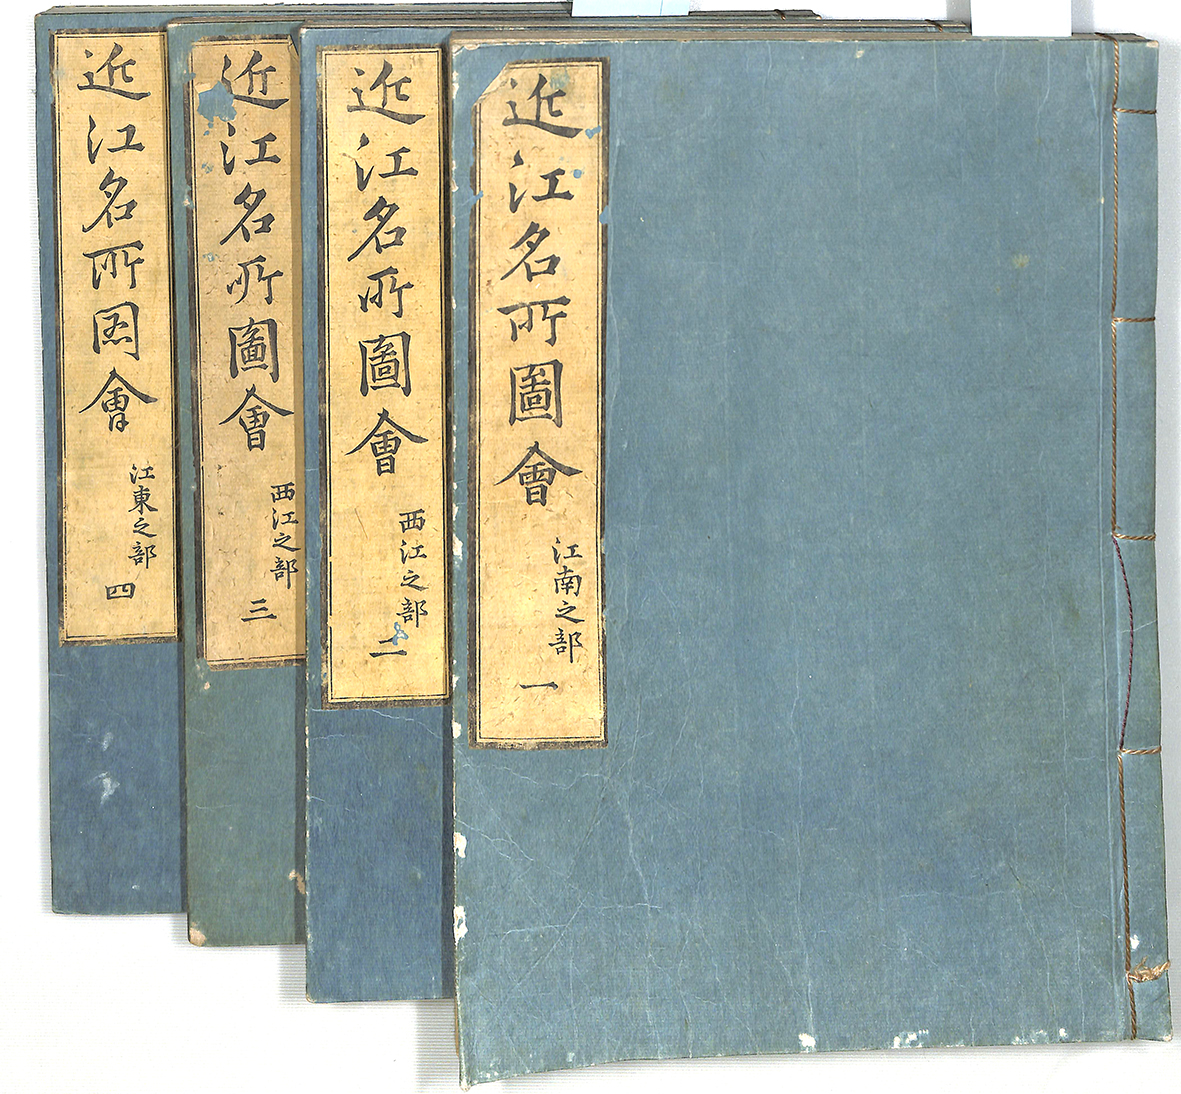 近江名所圖會
江南之部
一
近江名所圖會
西江之部
二
近江名所圖會
西江之部
三
近江名所図會
江東之部
四